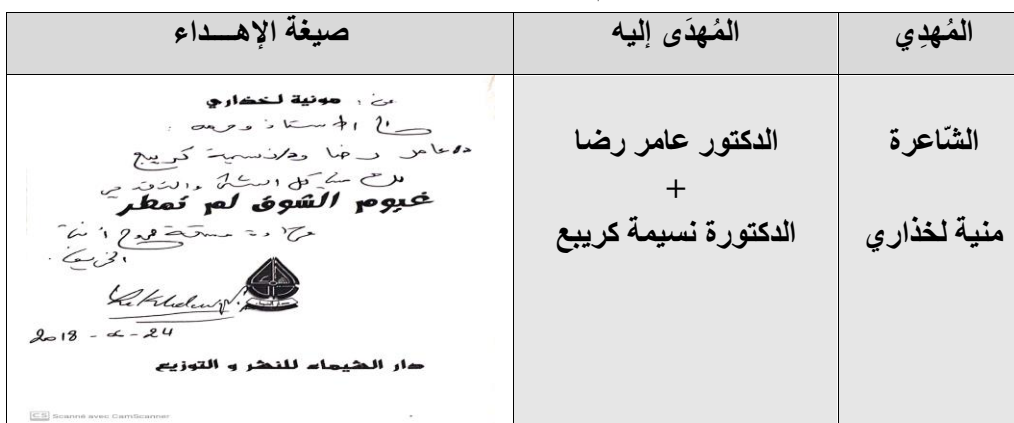 المُهدِي
المُهدَى إليه
صيغة الإهـــداء
الشّاعرة
منية لخذاري
الدكتور عامر رضا
+
الدكتورة نسيمة كريبع
من: مونية لخضاري
إلى الأستاذ وحرمه:
د/عامر رضا ود/نسيمة كريبع
لك مني كل
غيوم الشوق لم تمطر
2018 - - 24
دار الشيماء للنشر و التوزيع
CS Scanné avec CamScanner